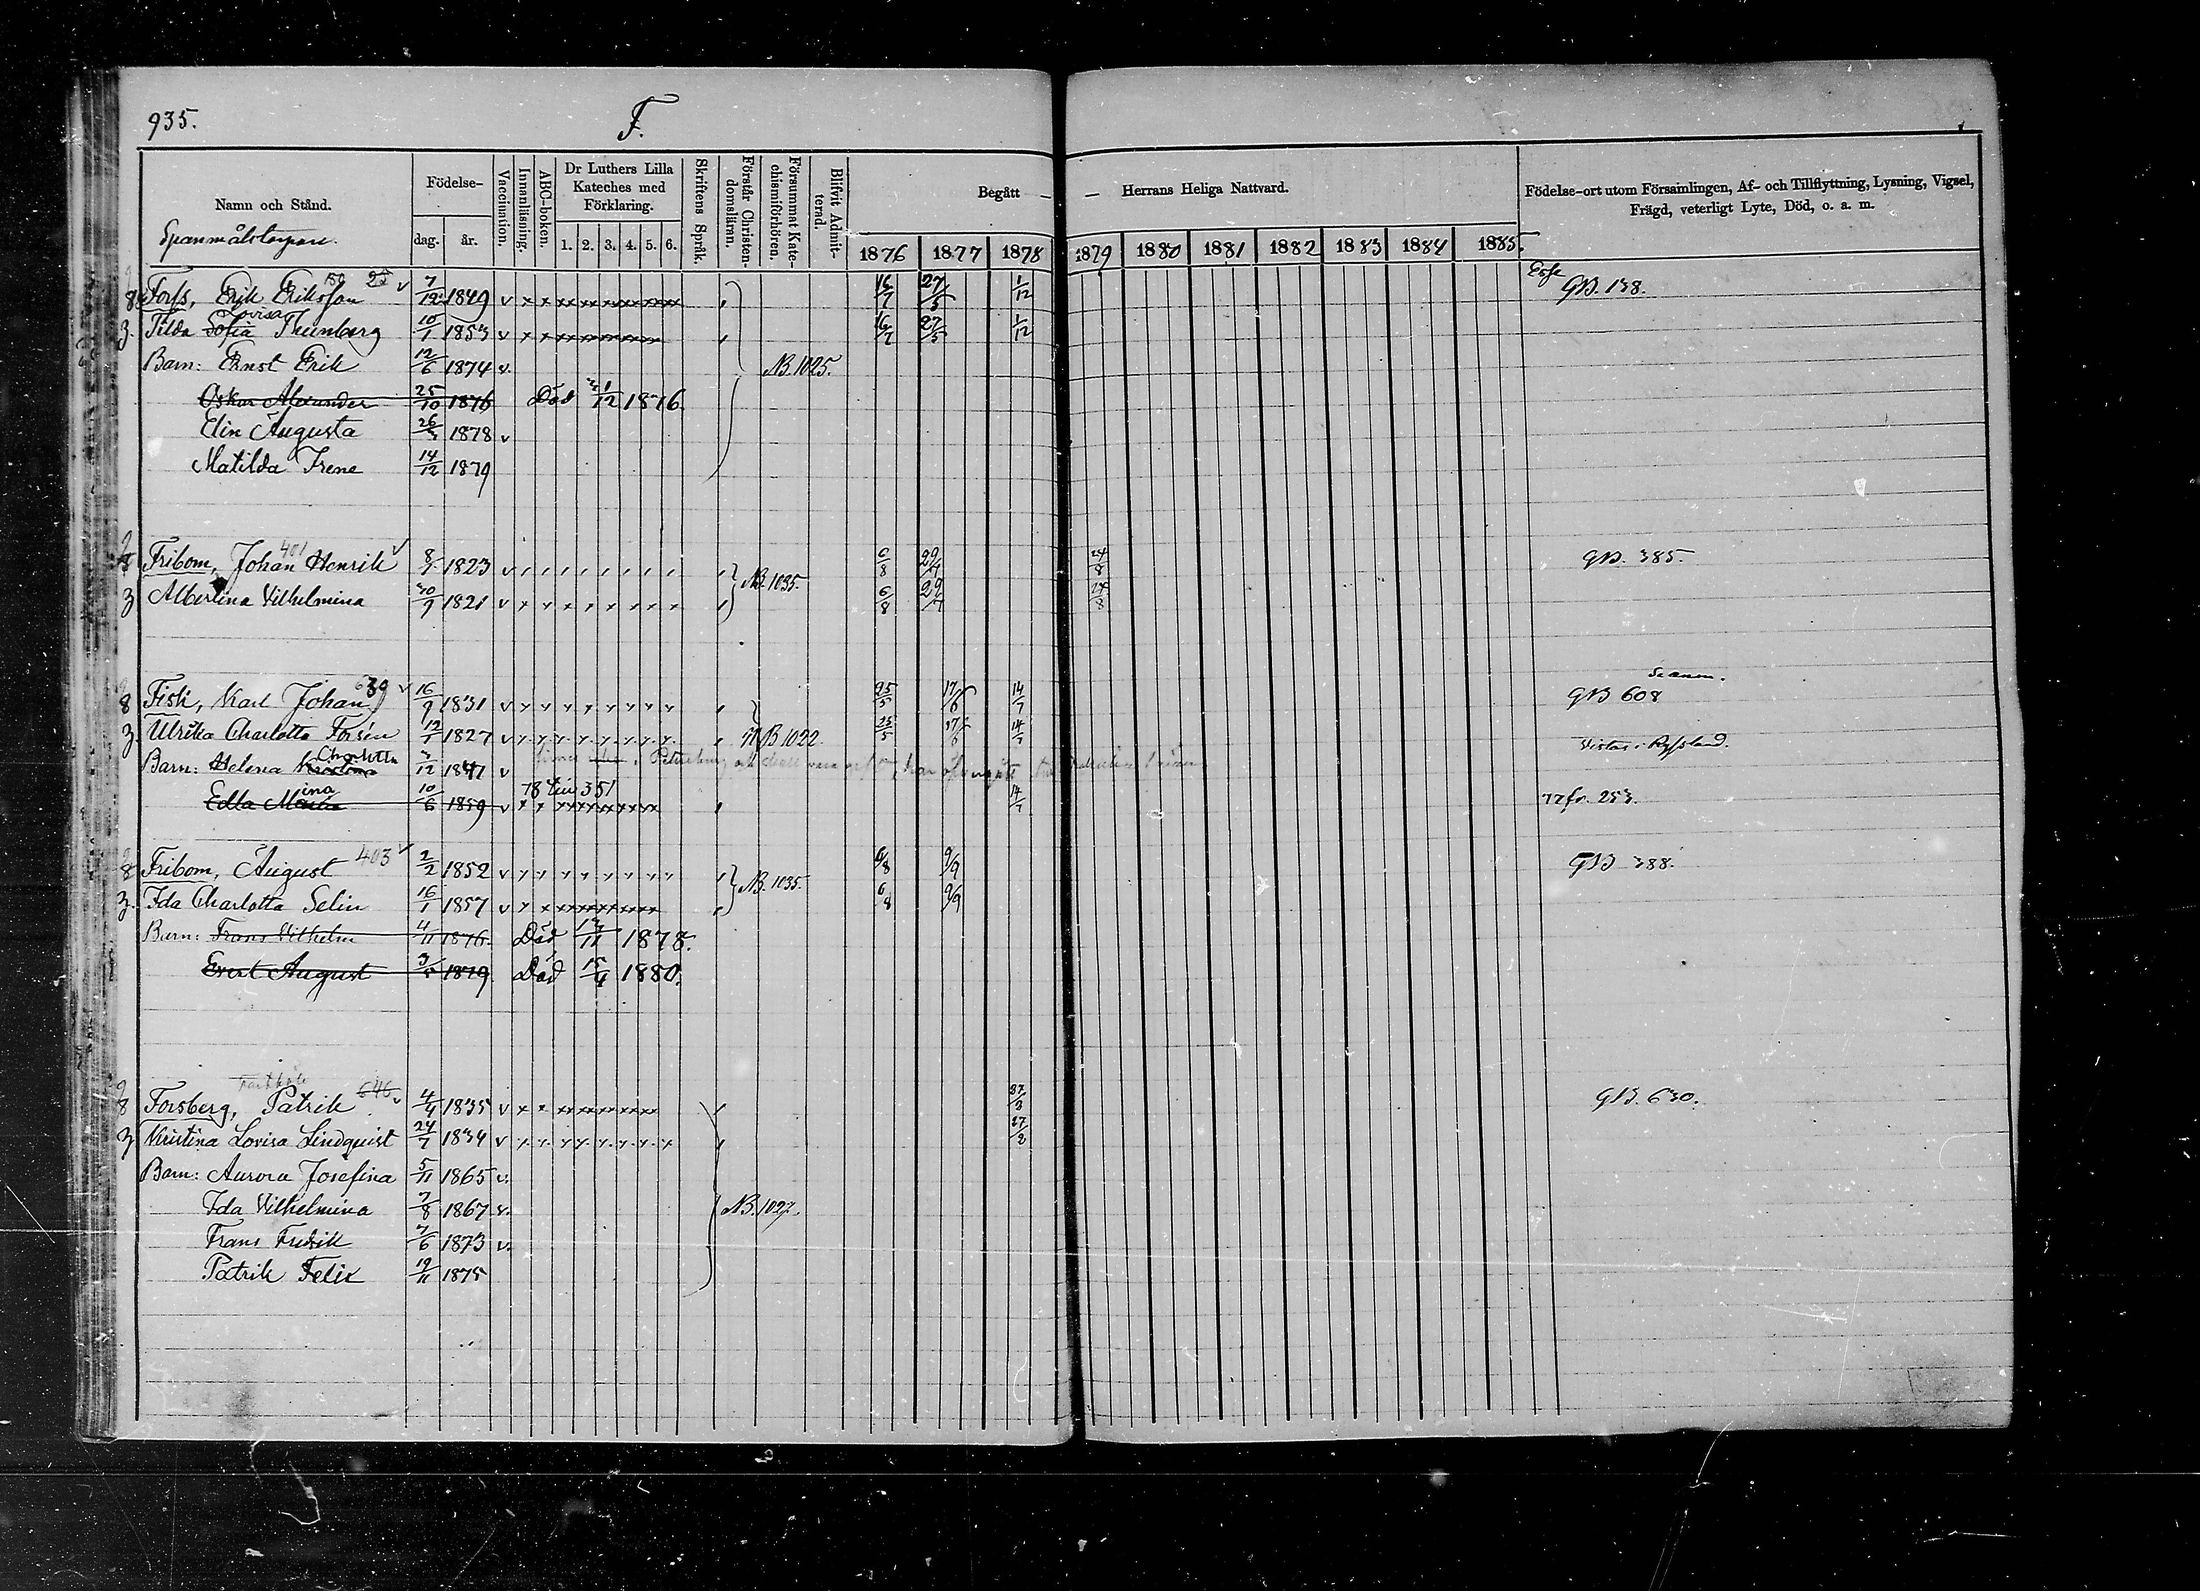 935.
F.
Namn och Stånd.
Födelse-
dag. år.
Vaccination.
Innanläsning.
ABC-boken.
Dr Luthers Lilla
Kateches med
Förklaring.
1. 2. 3. 4. 5. 6.
Skriftens Språk.
Förstår Christen-
domsläran.
Försummat Kate-
chismiförhören.
Blifvit Admit-
terad.
Begått — — Herrans Heliga Nattvard.
1876 1877 1878 1879 1880 1881 1882 1883 1884 1885.
Födelse-ort utom Församlingen, Af- och Tillflyttning, Lysning, Vigsel,
Frägd, veterligt Lyte, Död, o. a. m.
Forss, Erik Eriksson 7/12 1849 v 16/7 27/5 1/12 GB. 138.
Lovisa
3. Tilda Sofia Thunberg 10/1 1853 v 16/7 27/5 1/12
Barn: Ernst Erik 12/6 1874 v. NB. 1025.
Oskar Alexander 25/10 1876 Död 1/12 1876
Elin Augusta 1878 v
Matilda Irene 14/12 1879
401
Fribom, Johan Henrik 1823 v 6/8 29/7 24/8 GB. 385.
NB. 1035.
3 Albertina Vilhelmina 30/9 1821 v 6/8 29/7 24/8
639
8 Fisk, Karl Johan 16/9 1831 v 25/5 17/6 14/7 GB 608
3. Ulrika Charlotta Forsén 1827 v 25/5 17/6 14/7 NB 1022. Vistas i Ryssland.
Charlotta
Barn: Helena Kristina 1847 v
ina
Edla Maria 10/6 1859 v 14/7 253.
403
8 Fribom, August 2/2 1852 v 6/8 9/9 GB 388.
NB. 1035.
3. Ida Charlotta Selin 16/1 1857 v 6/8 9/9
Barn: Frans Vilhelm 4/11 1876. Död 1878.
Evert August 1879 Död 15/4 1880.
646
8 Forsberg, Patrik 4/4 1835 v GB. 630.
3. Kristina Lovisa Lindquist 24/7 1834 v
Barn: Aurora Josefina 5/11 1865 v.
Ida Vilhelmina 7/8 1867 v. NB. 1027.
Frans Fredrik 7/6 1873 v.
Patrik Felix 19/11 1875